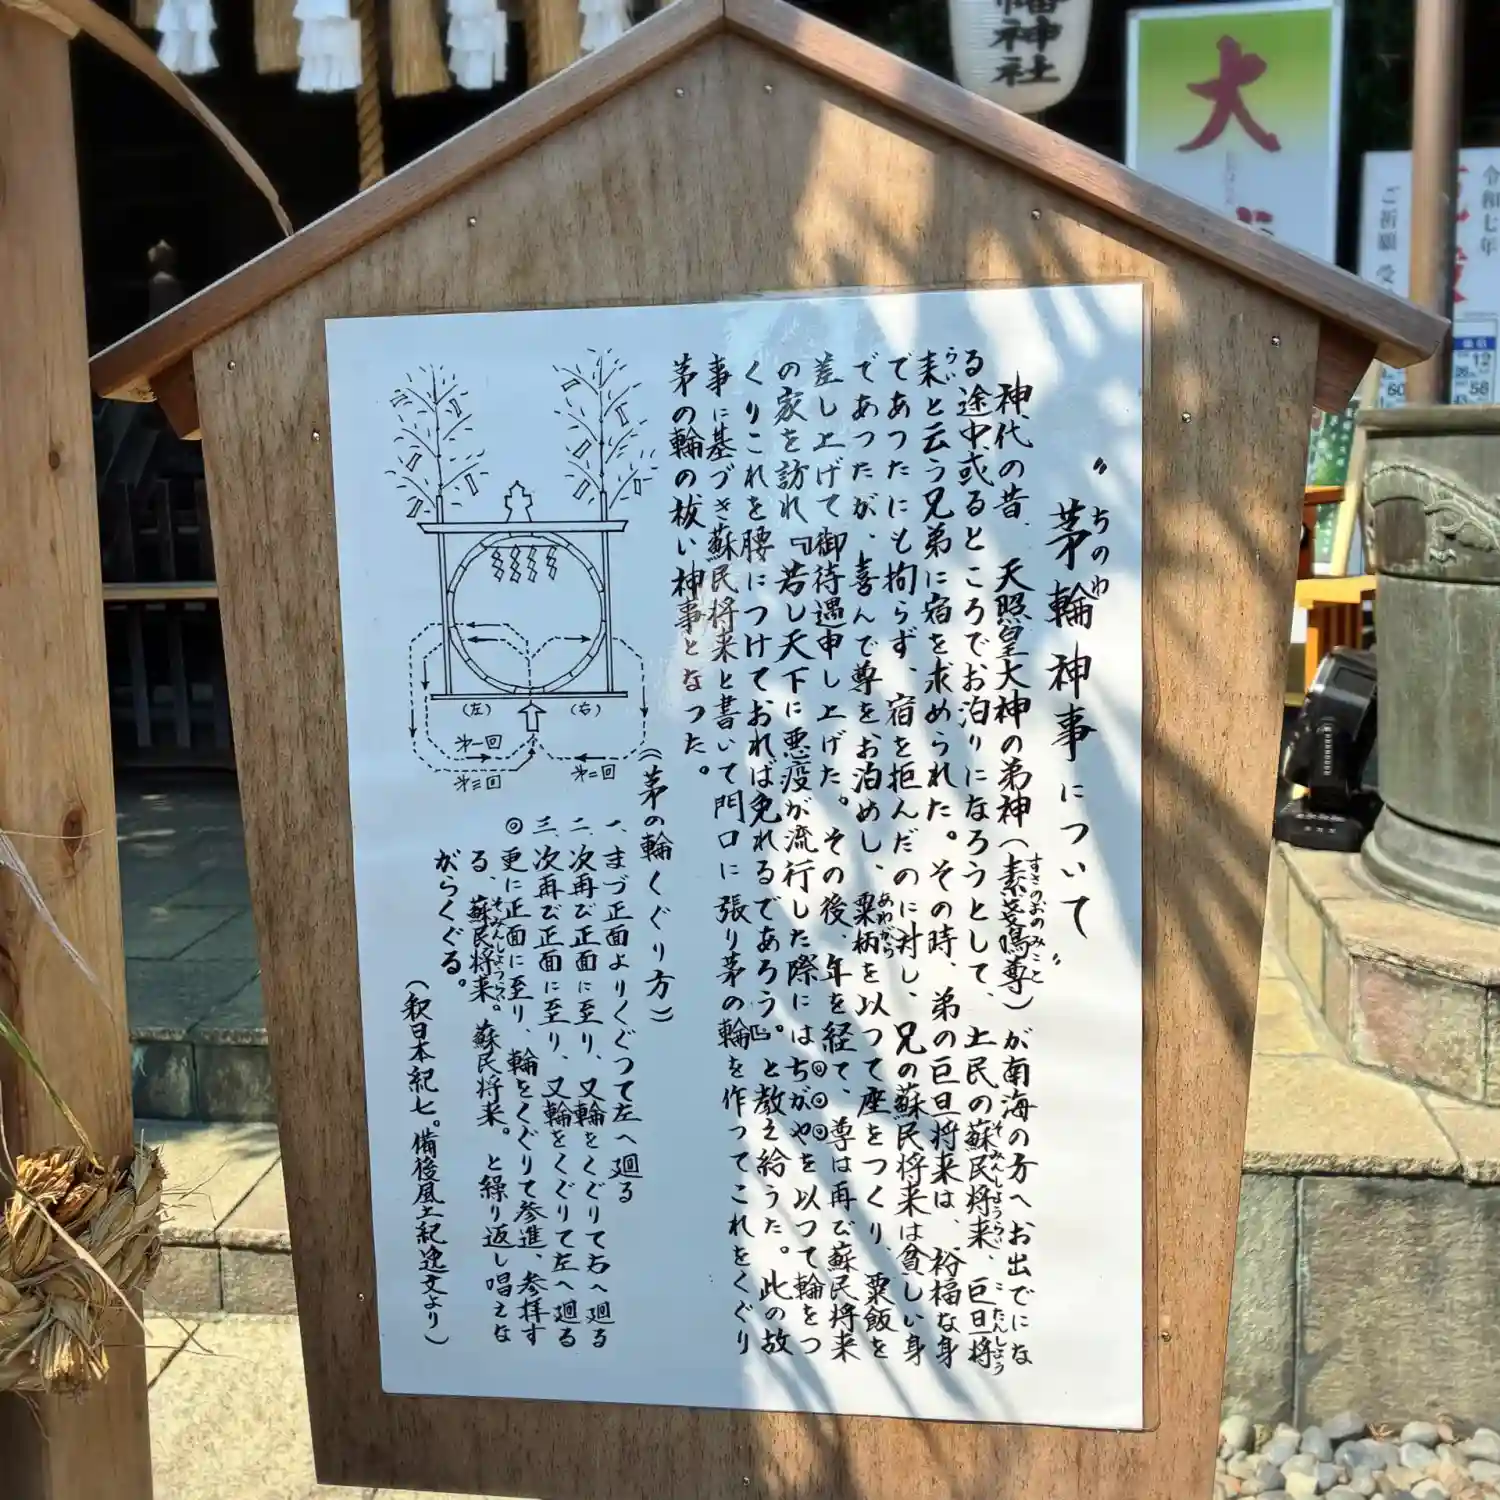 幡神社
大
令和七年
ご祈願 受
〝茅輪神事について〟
ちのわ
神代の昔、天照皇大神の弟神(素戔嗚尊)が南海の方へお出でにな
すさのおのみこと
る途中、或るところでお泊りになろうとして、土民の蘇民将来、巨旦将
そみんしょうらい
こたんしょう
来と云う兄弟に宿を求められた。その時、弟の巨旦将来は、裕福な身
うい
であつたにも拘らず、宿を拒んだのに対し、兄の蘇民将来は貧しい身
であつたが、喜んで尊をお泊めし、粟柄を以つて座をつくり、粟飯を
あわがら
差し上げて御待遇申し上げた。その後、年を経て、尊は再び蘇民将来
の家を訪れ『若し天下に悪疫が流行した際にはちがやを以つて輪をつ
くりこれを腰につけておれば免れるであろう。』と教え給うた。此の故
事に基づき蘇民将来と書いて門口に張り茅の輪を作ってこれをくぐり
茅の輪の祓い神事となつた。
(左)
(右)
第一回
第二回
第三回
(茅の輪くぐり方)
一、まづ正面よりくぐつて左へ廻る
二、次再び正面に至り、又輪をくぐりて右へ廻る
三、次再び正面に至り、又輪をくぐりて左へ廻る
◎更に正面に至り、輪をくぐりて参進、参拝す
る、蘇民将来。蘇民将来。と繰り返し唱えな
そみんしょうらい
がらくぐる。
(釈日本紀七。備後風土記逸文より)